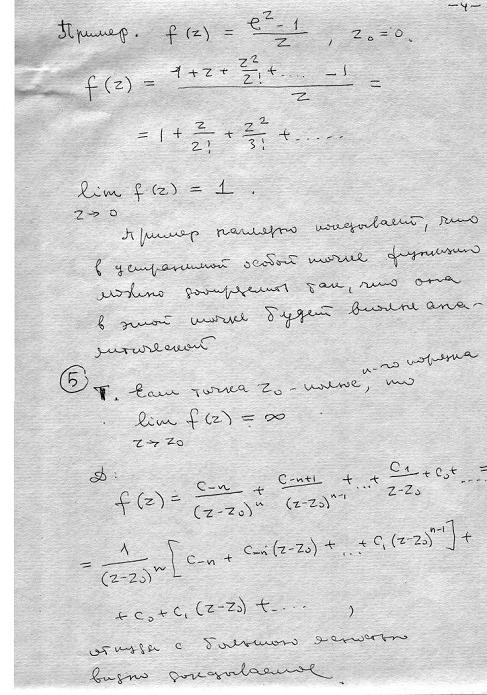 -4-
Пример. f(z) = (e^z - 1)/z , z₀ = 0.
f(z) = (1 + z + z²/2! + .... - 1)/z =
= 1 + z/2! + z²/3! + .....
lim f(z) = 1 .
z→0
Пример наглядно показывает, что
в устранимой особой точке функцию
можно доопределить так, что она
в этой точке будет вполне ана-
литической
⑤ Т. Если точка z₀ - полюс n-го порядка, то
lim f(z) = ∞
z→z₀
Д:
f(z) = c-n/(z-z₀)^n + c-n+1/(z-z₀)^n-1 + ... + c1/(z-z₀) + c₀ + ..... =
= 1/(z-z₀)^n [c-n + c-n (z-z₀) + ... + c₁(z-z₀)^n-1] +
+ c₀ + c₁(z-z₀) + .... ,
откуда с большою ясностью
видно доказываемое.